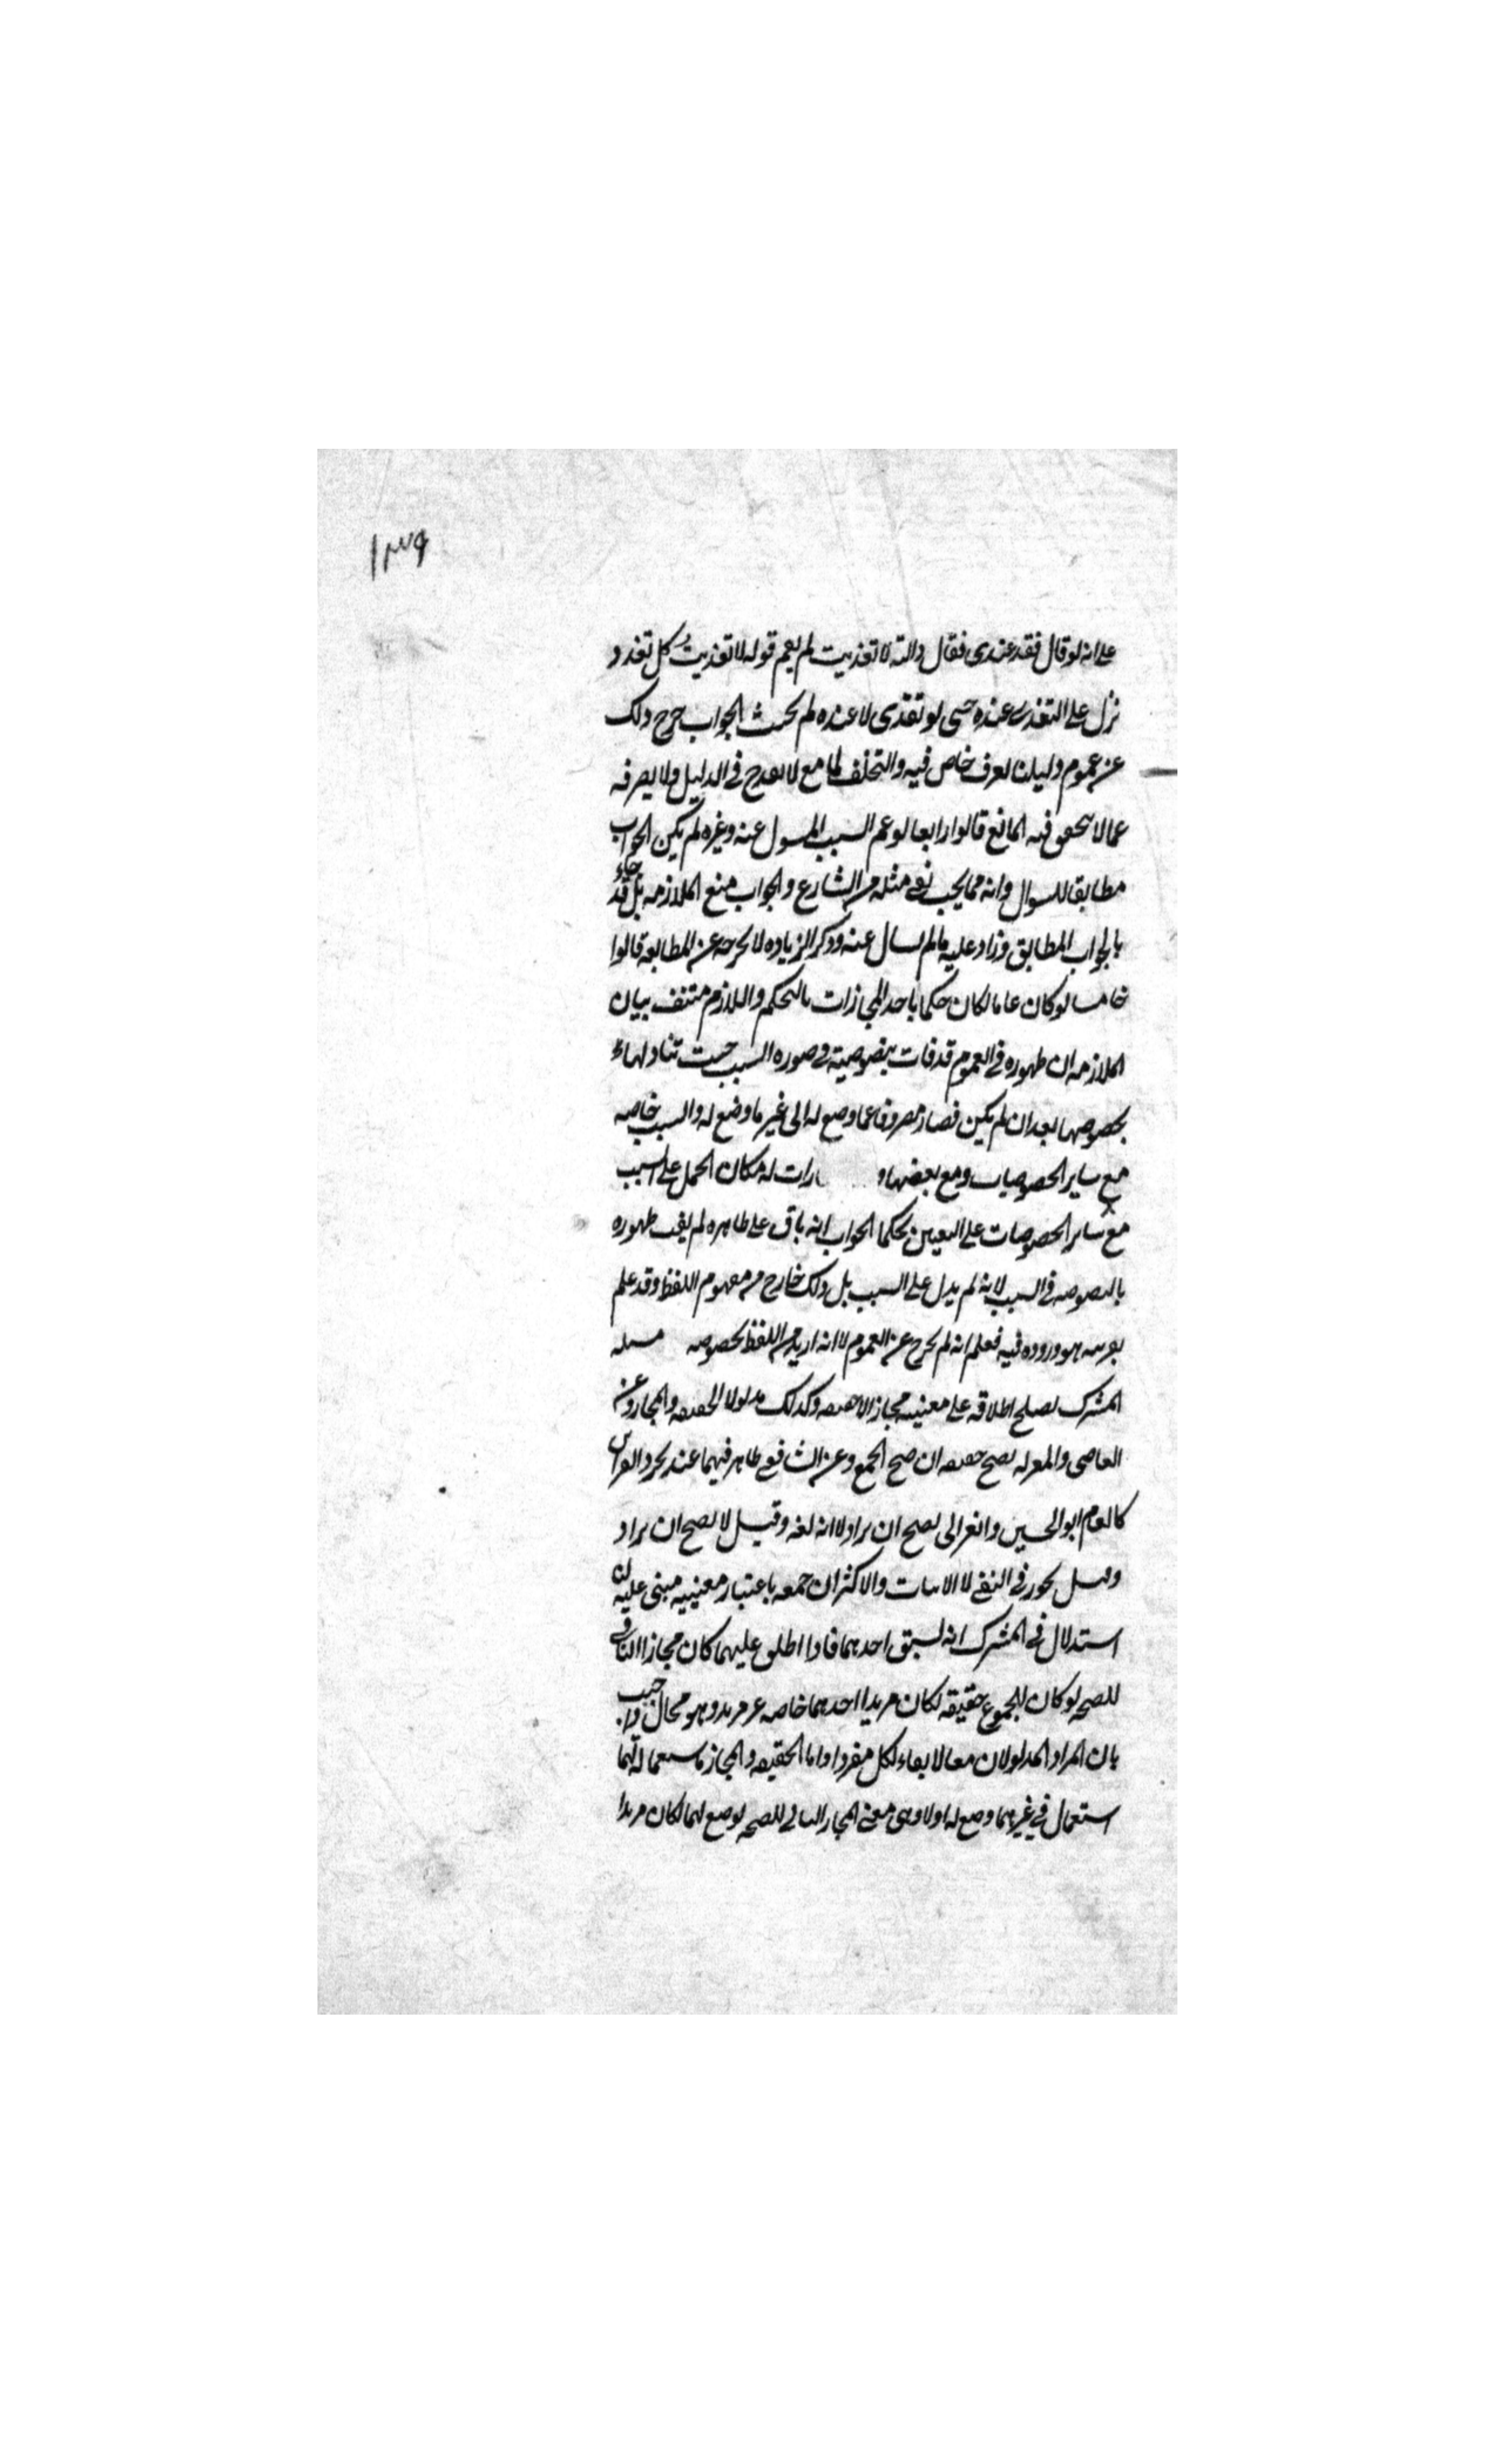 ١٣٩
على انه لو قال فقد عندى فقال والله لا تغذيت لم يعم قوله لا تغذيت كل تغد و
نزل على التغدى عنده حتى لو تغدى لا عنده لم يحنث الجواب خرج ذلك
عن عموم دليلنا لعرف خاص فيه والتخلف لمانع لا يقدح في الدليل ولا يصرفه
عما لا يتحقق فيه المانع قالوا رابعا لو عم السبب المسول عنه وغيره لم يكن الجواب
مطابقا للسوال وانه مما يجب نفى مثله من الشارع والجواب منع الملازمه بل قد جاء
بالجواب المطابق وزاد عليه ما لم يسال عنه وذكر الزياده لا يخرجه عن المطابقه قالوا
خامسا لو كان عاما لكان حكما باحد المجازات بالتحكم واللازم منتف بيان
الملازمه ان ظهوره في العموم قد فات بنصوصيته في صوره السبب حيث تناولها
بخصوصها بعد ان لم يكن فصار مصروفا عما وضع له الى غير ما وضع له والسبب خاصه
مع ساير الخصوصيات ومع بعضها رات له فكان الحمل على السبب
مع ساير الخصوصات على التعيين تحكما الجواب انه باق على ظاهره لم يفت ظهوره
بالنصوصه في السبب لانه لم يدل على السبب بل ذلك خارج من مفهوم اللفظ وقد علم
بقرينه هو وروده فيه فعلم انه لم يخرج عن العموم لا انه اريد من اللفظ بخصوصه مسله
المشترك يصلح اطلاقه على معنييه مجازا لا حقيقه وكذلك مدلولا الحقيقه والمجاز وعن
القاضى والمعتزله يصح حقيقه ان صح الجمع وعن الشافعى ظاهر فيهما عند تجرد القراين
كالعام ابو الحسين والغزالى يصح ان يراد لا انه لغه وقيل لا يصح ان يراد
وقيل يجوز في النفى لا الاثبات والاكثر ان جمعه باعتبار معنييه مبنى عليه لنا
استدلال في المشترك انه يسبق احدهما فاذا اطلق عليهما كان مجازا النافى
للصحه لو كان للمجموع حقيقه لكان مريدا احدهما خاصه غير مريد وهو محال واجيب
بان المراد المدلولان معا لا بقاء لكل مفردا واما الحقيقه والمجاز فاستعماله لهما
استعمال في غير ما وضع له اولا وهى معنى المجاز النافى للصحه لو صح لهما لكان مريدا